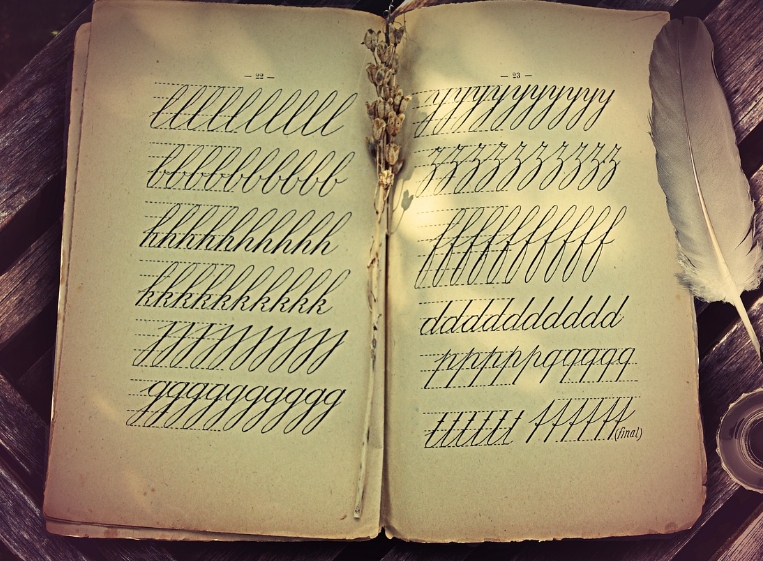 — 22 —
llllllllll
bbbbbbbbbb
hhhhhhhhhh
kkkkkkkkkk
jjjjjjjjjj
gggggggggg
— 23 —
yyyyyyyyyy
zzzzzzzzzz
ffffffffff
dddddddddd
pppppqqqqq
tttttt tttttt(final)